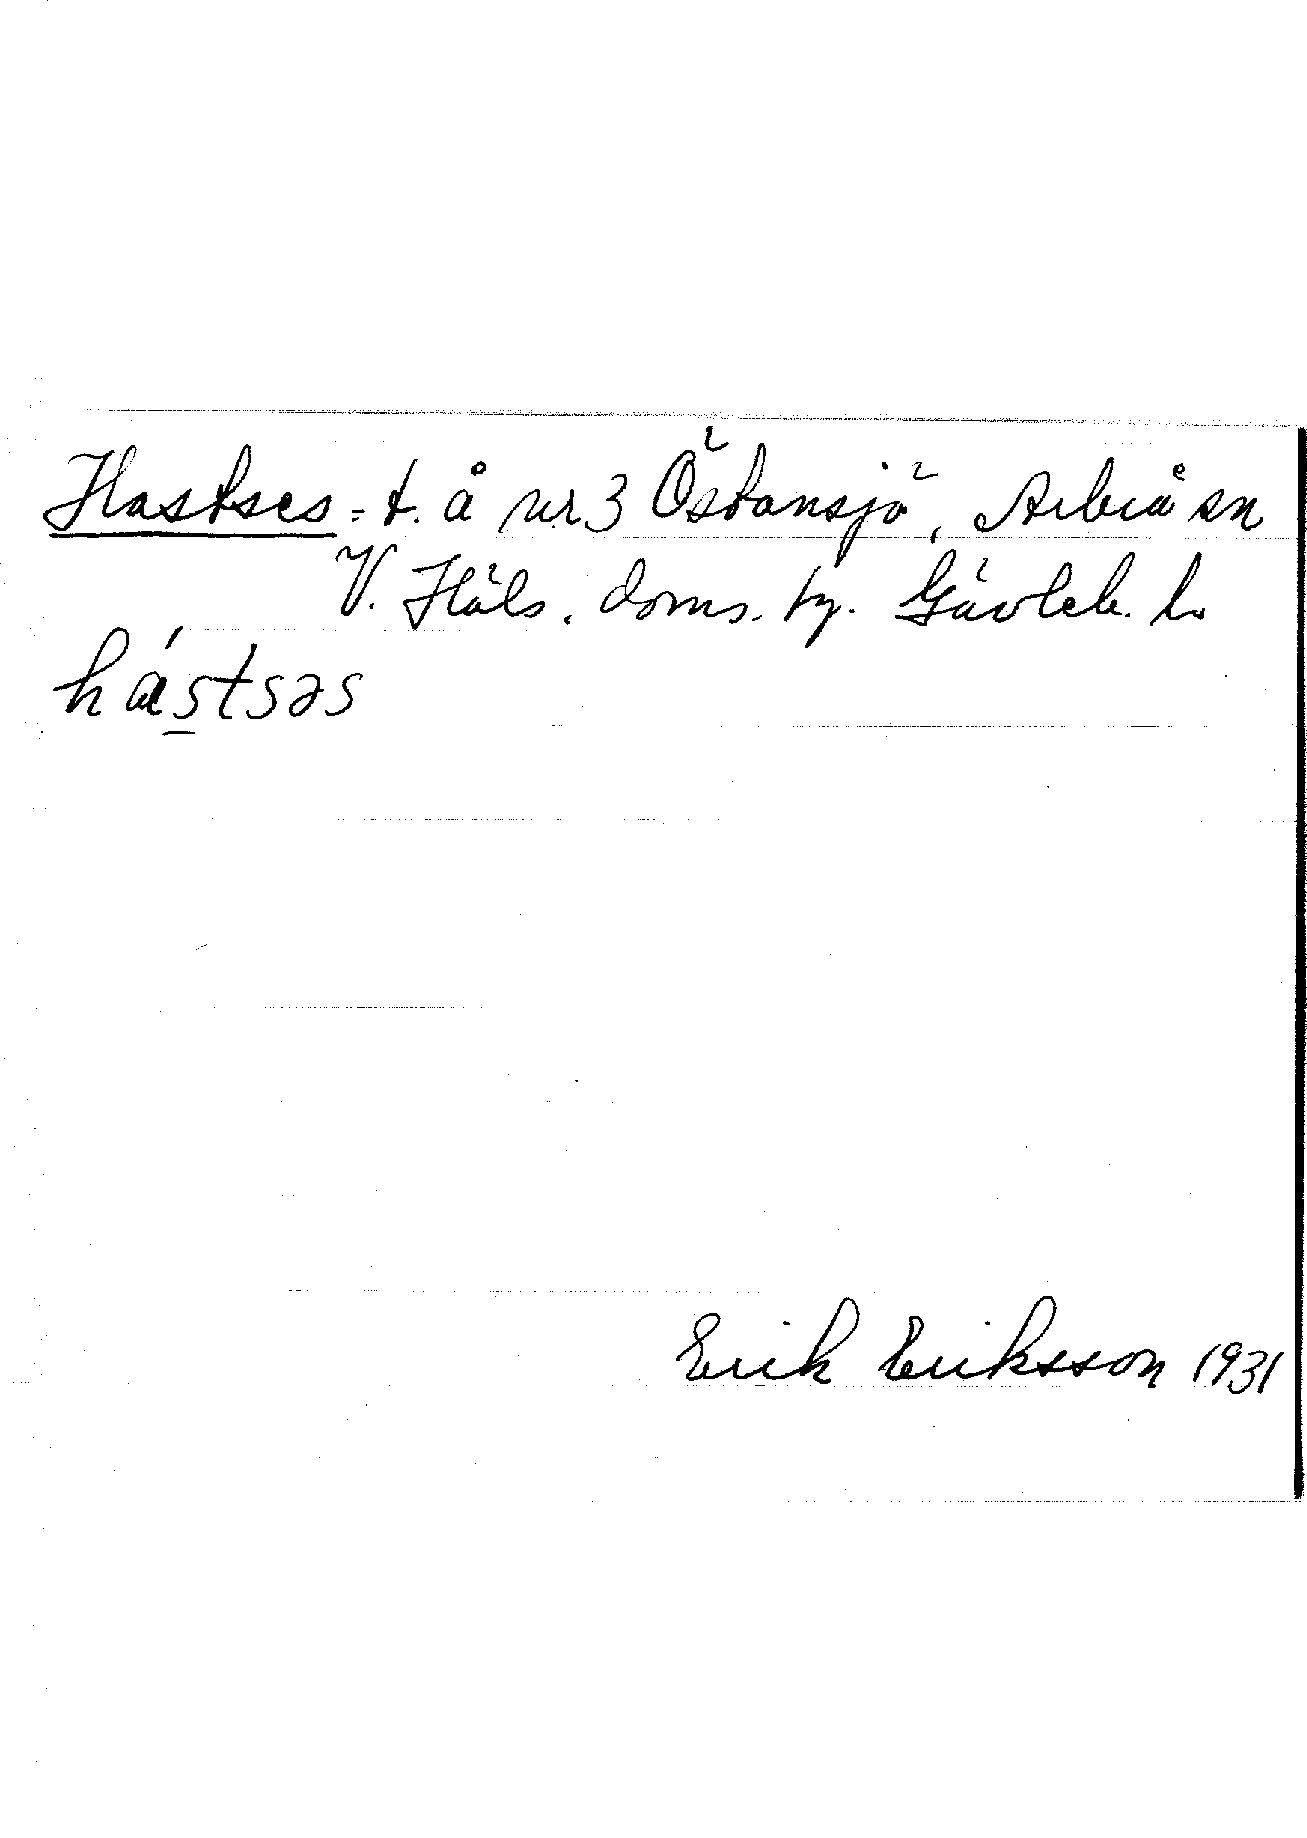 Hastses = t. å nr 3 Östansjö, Arbrå sn
V. Häls. doms. tg. Gävleb. l.
hástsəs
Erik Eriksson 1931